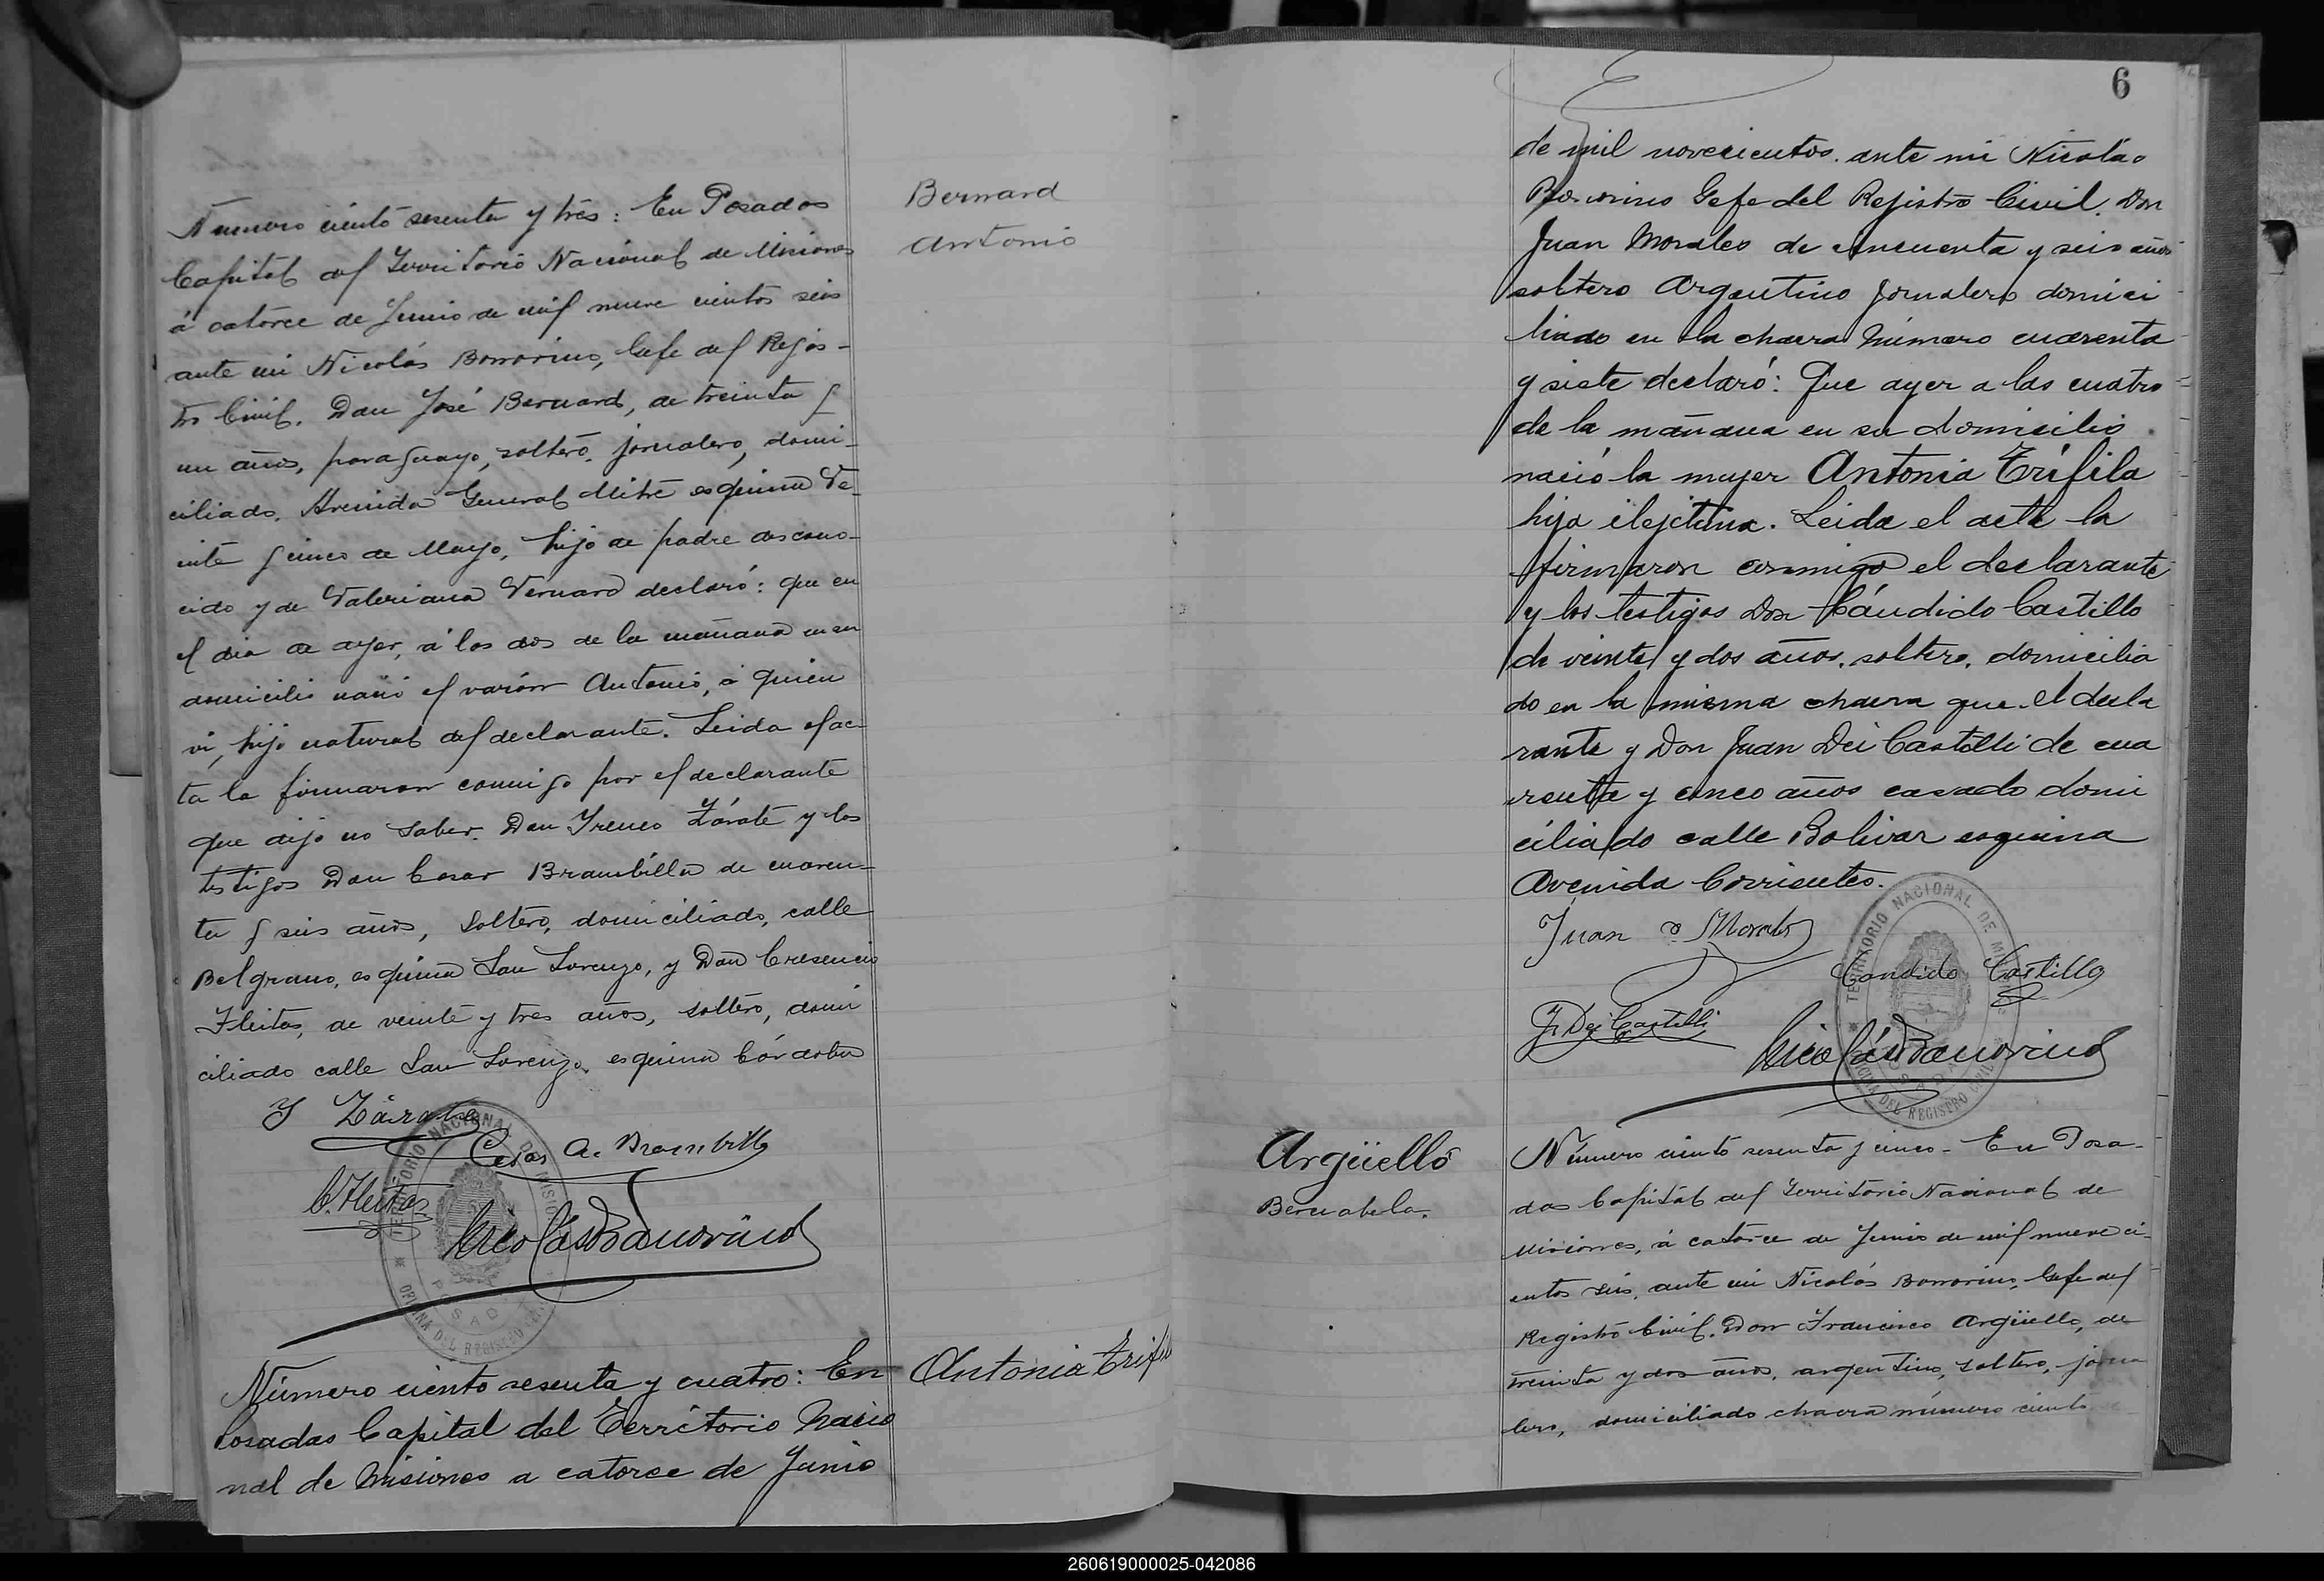 Número ciento sesenta y trés: En Posadas
Capital del Territorio Nacional de Misiones
á catorce de Junio de mil nueve cientos seis
ante mi Nicolás Bonorino, Gefe del Rejis-
tro Civil. Don José Bernard, de treinta y
un años, paraguayo, soltero, jornalero, domi-
ciliado, Avenida General Mitre esquina Ve-
inte y cinco de Mayo, hijo de padre descono-
cido y de Valeriana Vernard declaró: que en
el dia de ayer, á las dos de la mañana en su
domicilio nació el varón Antonio, á quien
vi, hijo natural del declarante. Leida el ac-
ta la firmaron conmigo por el declarante
que dijo no saber. Don Ireneo Zárate y los
testigos Don Cesar Brambilla de cuaren-
ta y seis años, soltero, domiciliado, calle
Belgrano, esquina San Lorenzo, y Don Cresencio
Fleitas, de veinte y tres años, soltero, domi
ciliado calle San Lorenzo, esquina Córdoba
Y Zárate
Cesar A. Brambilla
C. Fleitas
Nicolás Bonorino
TERRITORIO NACIONAL DE MISIONES
POSADAS
OFICINA DEL REGISTRO CIVIL
Número ciento sesenta y cuatro: En
Posadas Capital del Territorio Nacio
nal de Misiones a catorce de Junio
Bernard
Antonio
Antonia Trifila
6
de mil novecientos. ante mi Nicolás
Bonorino Gefe del Rejistro Civil. Don
Juan Morales de cincuenta y seis años
soltero Argentino Jornalero domici
liado en la chacra Número cuarenta
y siete declaró: Que ayer a las cuatro
de la mañana en su domicilio
nació la mujer Antonia Trífila
hija ilejitima. Leida el acta la
firmaron conmigo el declarante
y los testigos Don Cándido Castillo
de veinte y dos años, soltero, domicilia
do en la misma chacra que el decla
rante y Don Juan Dei Castelli de cua
renta y cinco años casado domi
ciliado calle Bolivar esquina
Avenida Corrientes.
Juan Morales
Candido Castillo
J. Dei Castelli
Nicolás Bonorino
TERRITORIO NACIONAL DE MISIONES
POSADAS
OFICINA DEL REGISTRO CIVIL
Argüello
Bernabela.
Número ciento sesenta y cinco- En Posa-
das Capital del Territorio Nacional de
Misiones, á catorce de Junio de mil nueve ci-
entos seis, ante mi Nicolás Bonorino, Gefe del
Registro Civil. Don Francisco Argüello, de
treinta y dos años, argentino, soltero, jorna
lero, domiciliado chacra número ciento
260619000025-042086